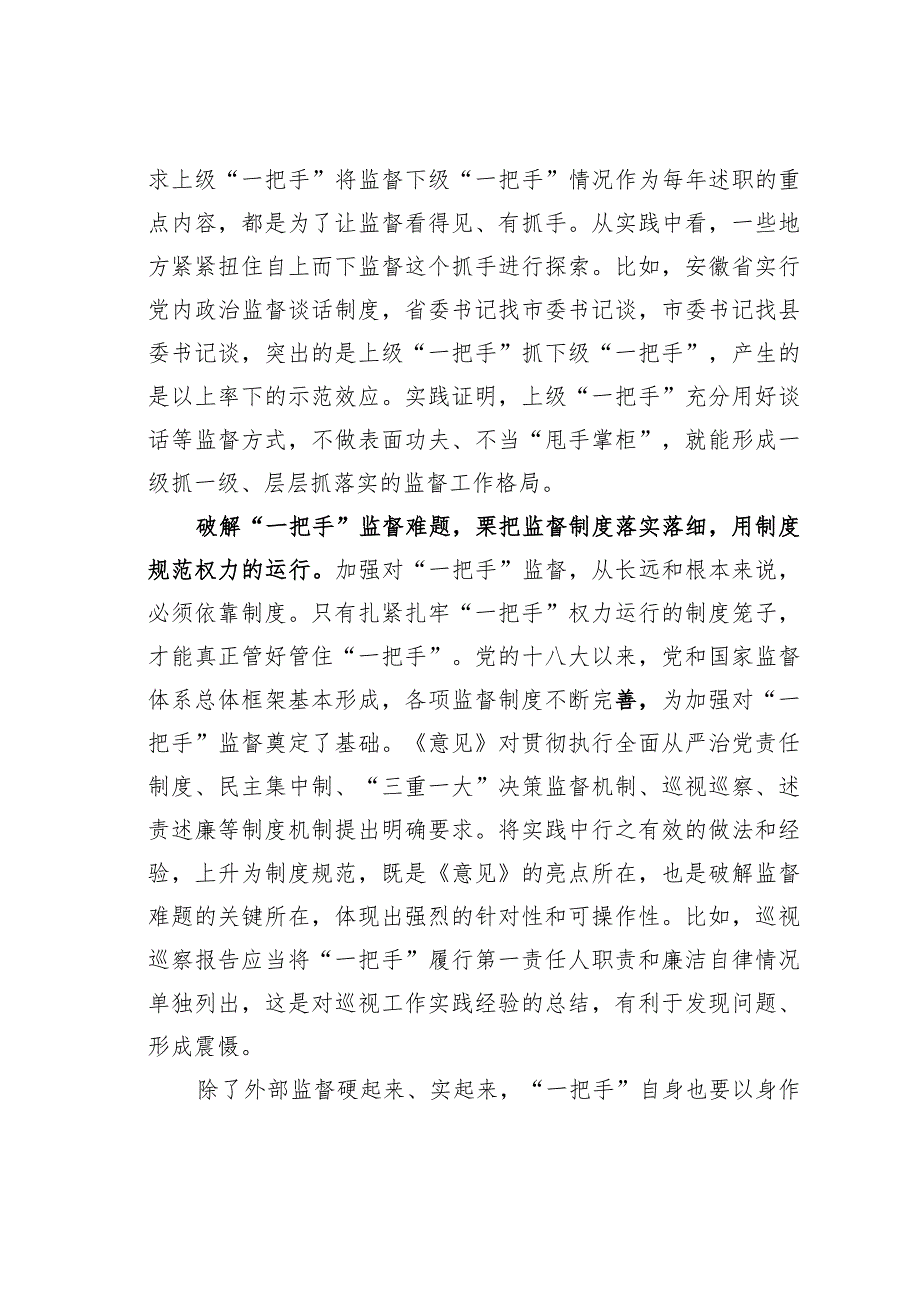 求上级“一把手”将监督下级“一把手”情况作为每年述职的重
点内容，都是为了让监督看得见、有抓手。从实践中看，一些地
方紧紧扭住自上而下监督这个抓手进行探索。比如，安徽省实行
党内政治监督谈话制度，省委书记找市委书记谈，市委书记找县
委书记谈，突出的是上级“一把手”抓下级“一把手”，产生的
是以上率下的示范效应。实践证明，上级“一把手”充分用好谈
话等监督方式，不做表面功夫、不当“甩手掌柜”，就能形成一
级抓一级、层层抓落实的监督工作格局。
破解“一把手”监督难题，栗把监督制度落实落细，用制度
规范权力的运行。加强对“一把手”监督，从长远和根本来说，
必须依靠制度。只有扎紧扎牢“一把手”权力运行的制度笼子，
才能真正管好管住“一把手”。党的十八大以来，党和国家监督
体系总体框架基本形成，各项监督制度不断完善，为加强对“一
把手”监督奠定了基础。《意见》对贯彻执行全面从严治党责任
制度、民主集中制、“三重一大”决策监督机制、巡视巡察、述
责述廉等制度机制提出明确要求。将实践中行之有效的做法和经
验，上升为制度规范，既是《意见》的亮点所在，也是破解监督
难题的关键所在，体现出强烈的针对性和可操作性。比如，巡视
巡察报告应当将“一把手”履行第一责任人职责和廉洁自律情况
单独列出，这是对巡视工作实践经验的总结，有利于发现问题、
形成震慑。
除了外部监督硬起来、实起来，“一把手”自身也要以身作